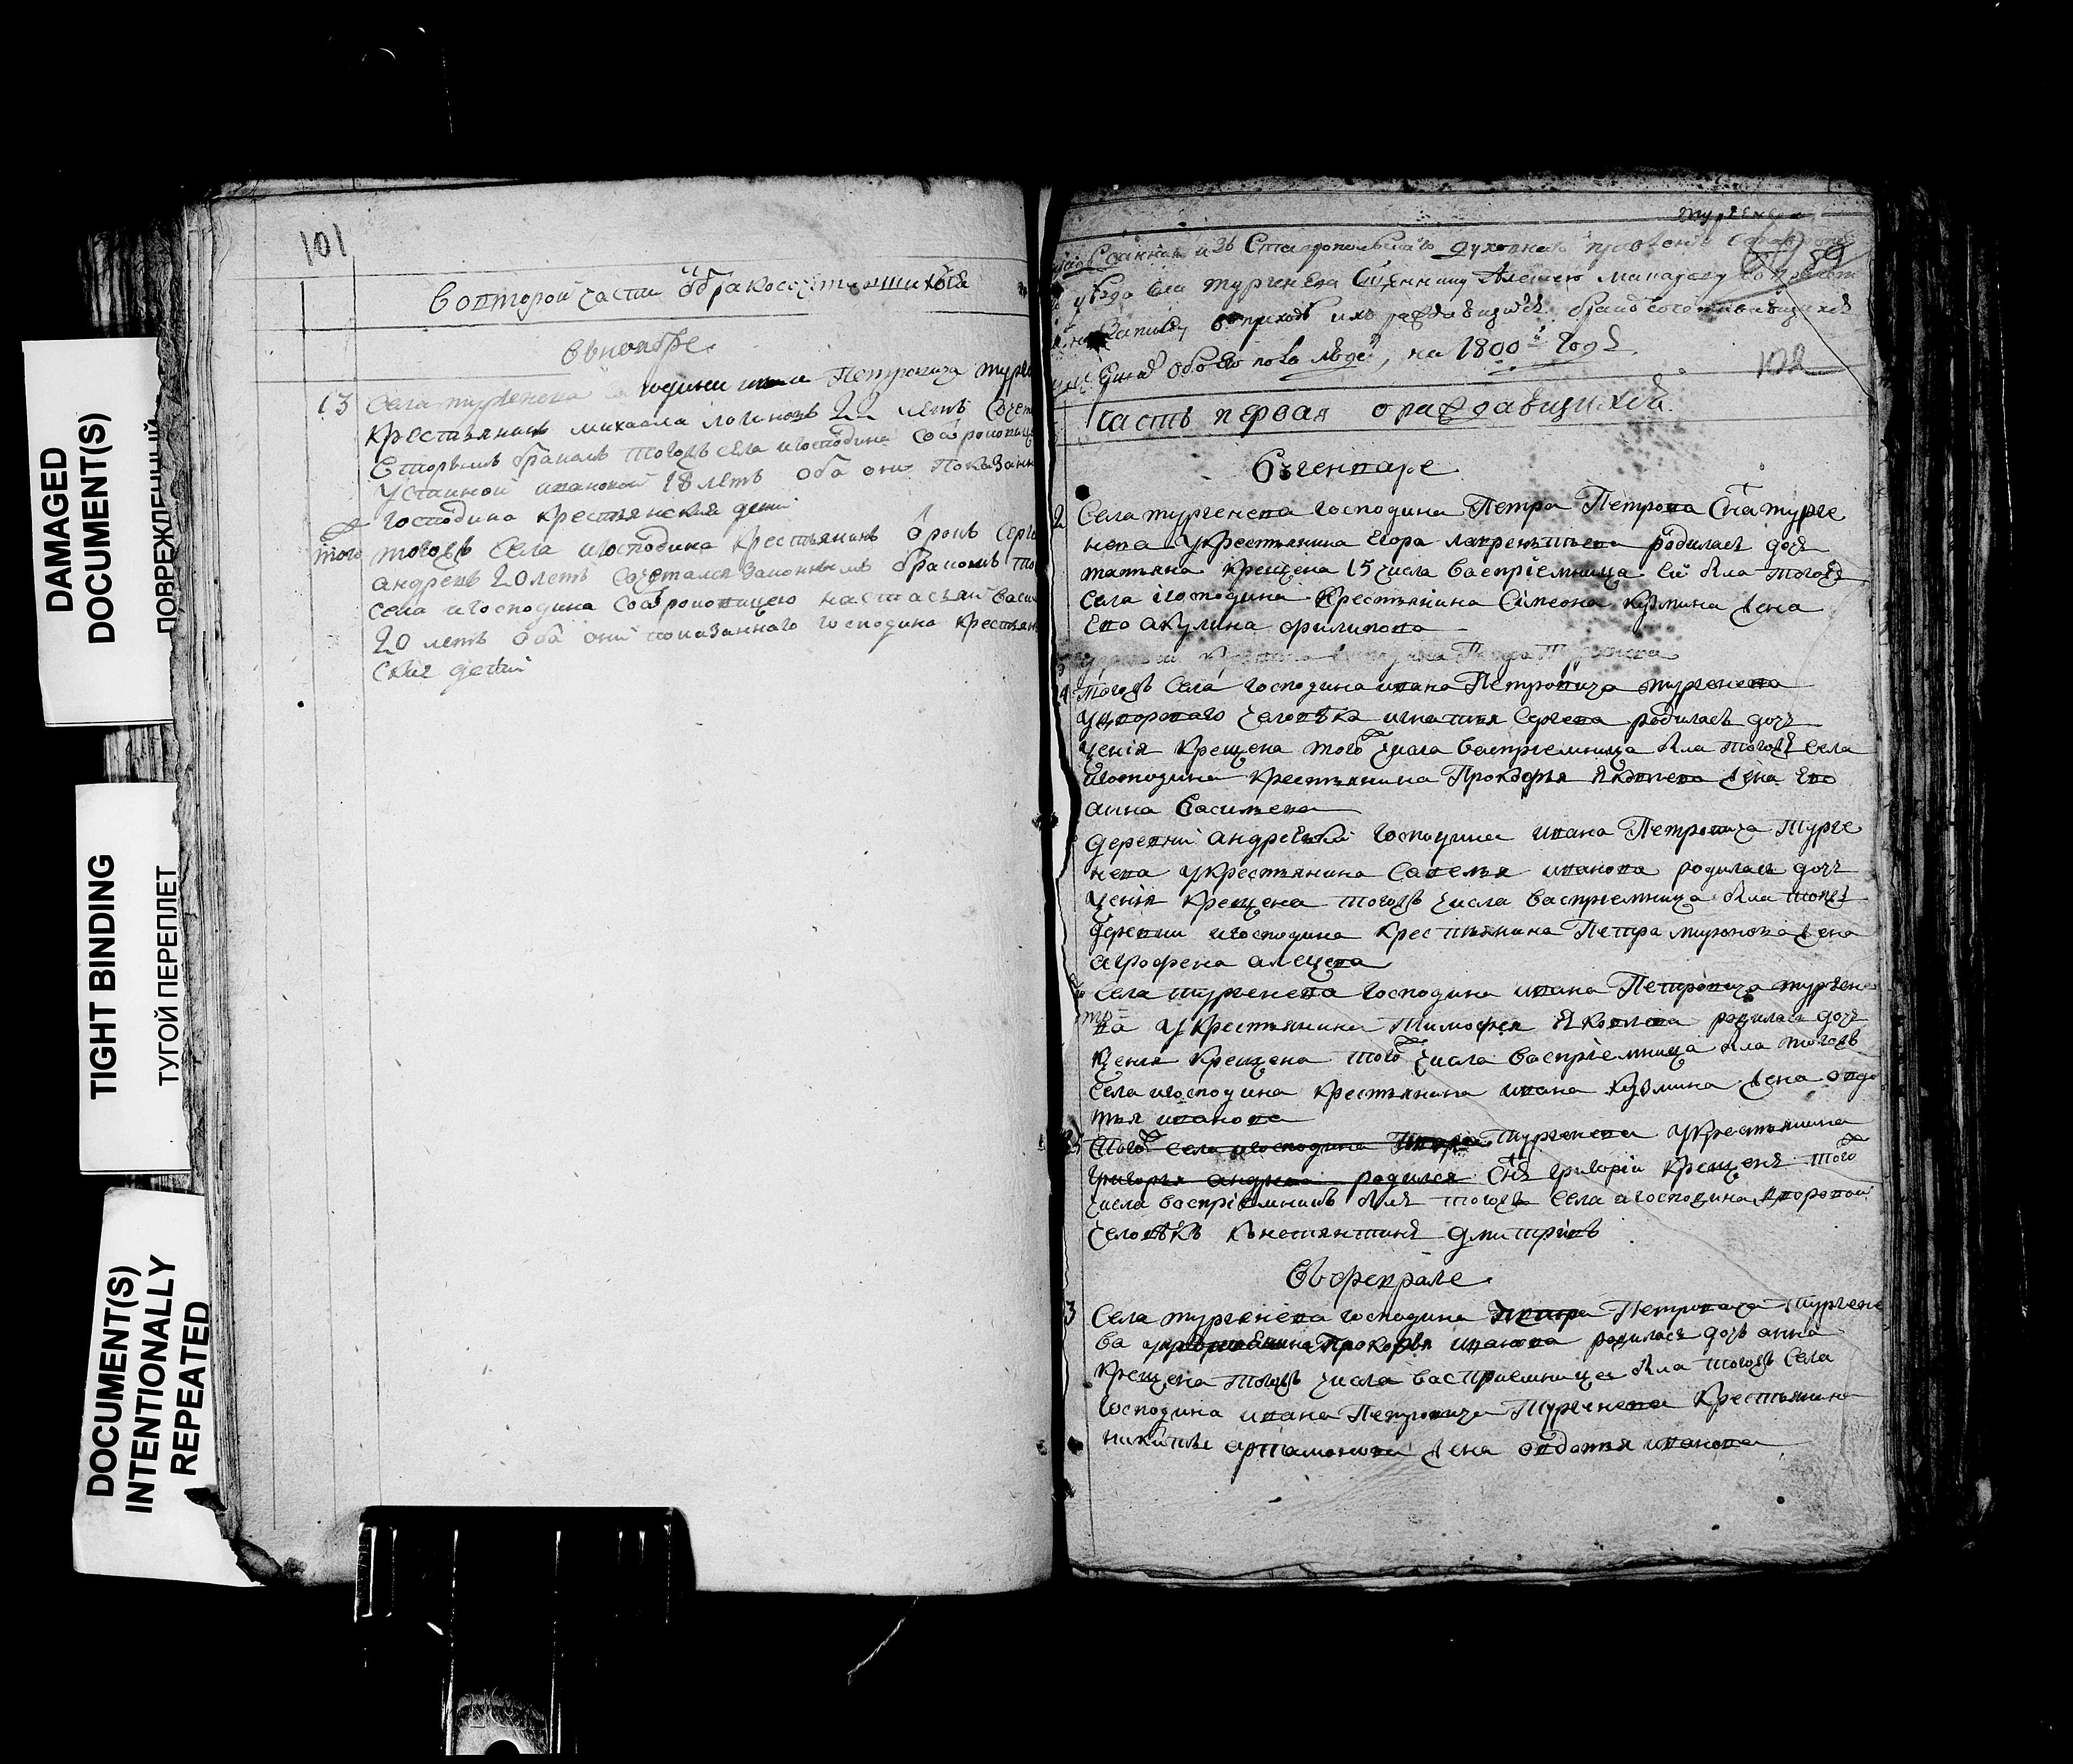 DAMAGED
DOCUMENT(S)
ПОВРЕЖДЕННЫЙ
TIGHT BINDING
ТУГОЙ ПЕРЕПЛЕТ
DOCUMENT(S)
INTENTIONALLY
REPEATED
101
вопторой части обракосочетавшихся
внонбре
13 Села тургенева господина Петровича
крестьянинъ михаила логиновъ 22 летъ
вторымъ бракомъ тогожъ села игосподина
устиной ивановой 18 летъ оба они показанна
господина крестьянския дети
того тогожъ села игосподина крестьянинъ
андреевъ 20 летъ сочетался законнымъ бракомъ
села игосподина настасьей
20 летъ оба они показаннаго господина крестьян
ския дети
данная изъ Ставропольскаго духовнаго правления
уезда села тургенева Сщеннику Алексею
записку вприходе ихъ раждающихся бракосочетавшихся
обоего пола людей, на 1800й годъ
89
102
часть первая ораждающихся
Въгенваре
2 Села тургенева господина Петра Петрова Сна турге
нева укрестьянина Егора лаврентьева родилась дочь
татьяна крещена 15 числа васприемница ей была тогожъ
села игосподина крестьянина Симеона кузмина жена
Ево акулина филипова
4 Тогожъ села господина ивана Петровича тургенева
удворваго человека игнатия Сергева родилась дочь
ксенія крещена того числа васприемница была тогожъ села
игосподина крестьянина Прокофья Яковлева жена Ево
анна Васильева
деревни андреевки господина ивана Петровича Турге
нева укрестьянина Савелья иванова родилась дочь
ксенія крещена тогожъ числа васприемница была тойжъ
деревни игосподина крестьянина Петра миронова жена
аграфена
Села тургенева господина ивана Петровича турген
ва укрестьянина Тимофея Яковлева родилась дочь
ксения крещена того числа васприемница была тогожъ
села игосподина крестьянина ивана кузмина жена овдо
тья иванова
Того села игосподина Петра Тургенева укрестьянина
григорья андреева родился Снъ григорій крещенъ того
числа васприемникъ былъ тогожъ села игосподина дворовой
человекъ кънстянтинъ дмитріевъ
Въфеврале
3 Села тургенева господина Петра Петровича Тургене
ва Прокофья иванова родилась дочь анна
крещена тогожъ числа васприемница была тогожъ села
господина ивана Петровича Тургенева крестьянина
никиты артамонова жена овдотья иванова